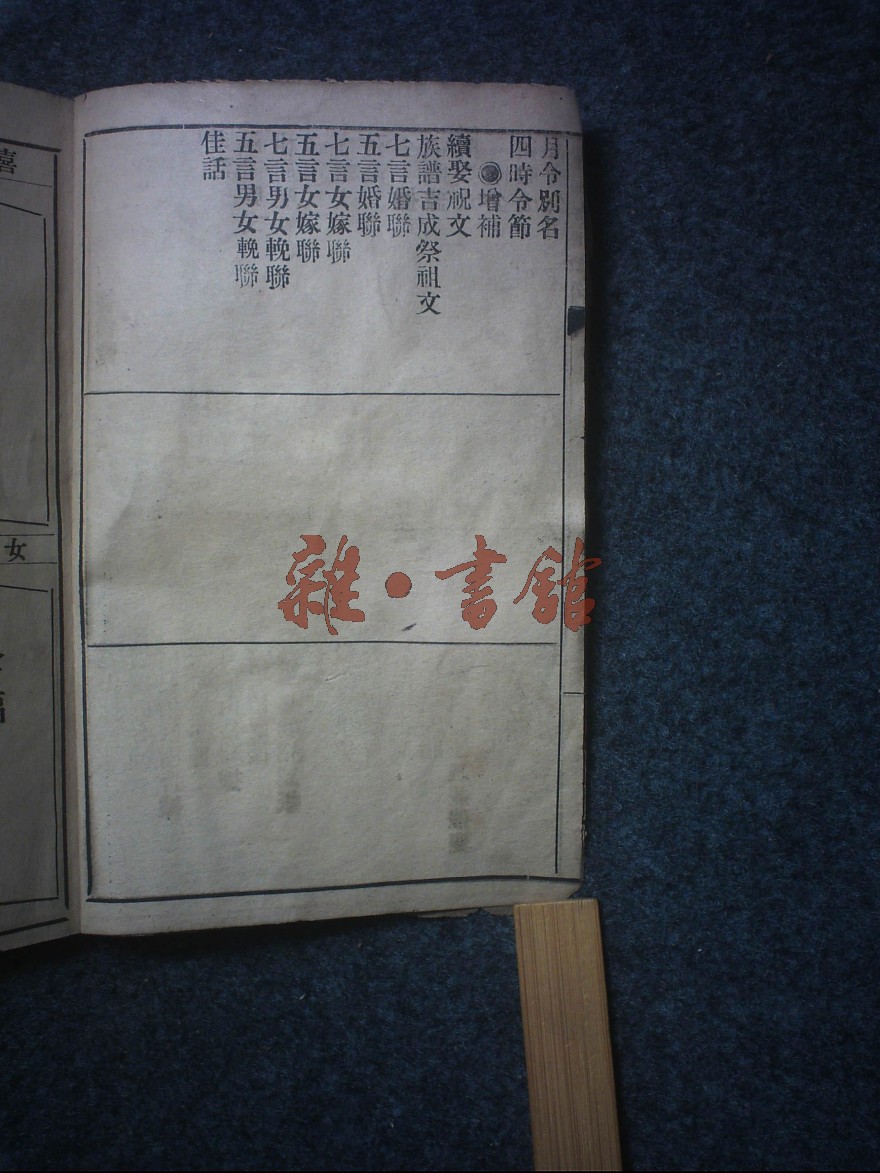 月令別名
四時令節
●增補
續娶祝文
族譜吉成祭祖文
七言婚聯
五言婚聯
七言女嫁聯
五言女嫁聯
七言男女輓聯
五言男女輓聯
佳話
雜·書館
女